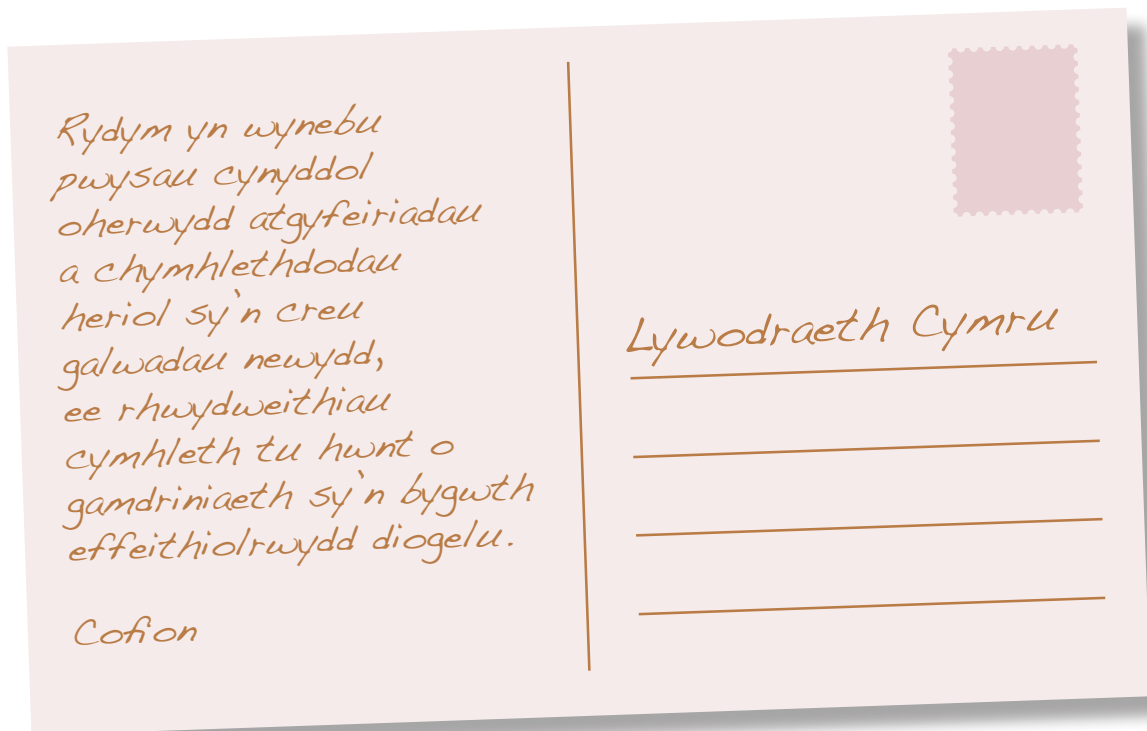 Rydym yn wynebu
pwysau cynyddol
oherwydd atgyfeiriadau
a chymhlethdodau
heriol sy'n creu
galwadau newydd,
ee rhwydweithiau
cymhleth tu hwnt o
gamdriniaeth sy'n bygwth
effeithiolrwydd diogelu.
Cofion
Lywodraeth Cymru